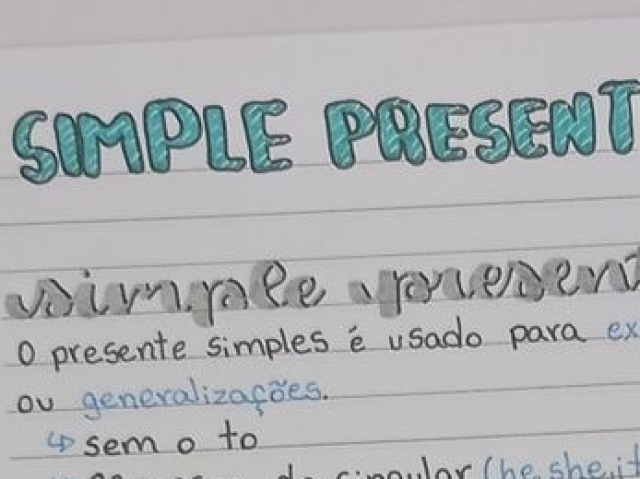 SIMPLE PRESENT
simple present
O presente simples é usado para ex
ou generalizações.
↳ sem o to
singular (he, she, it